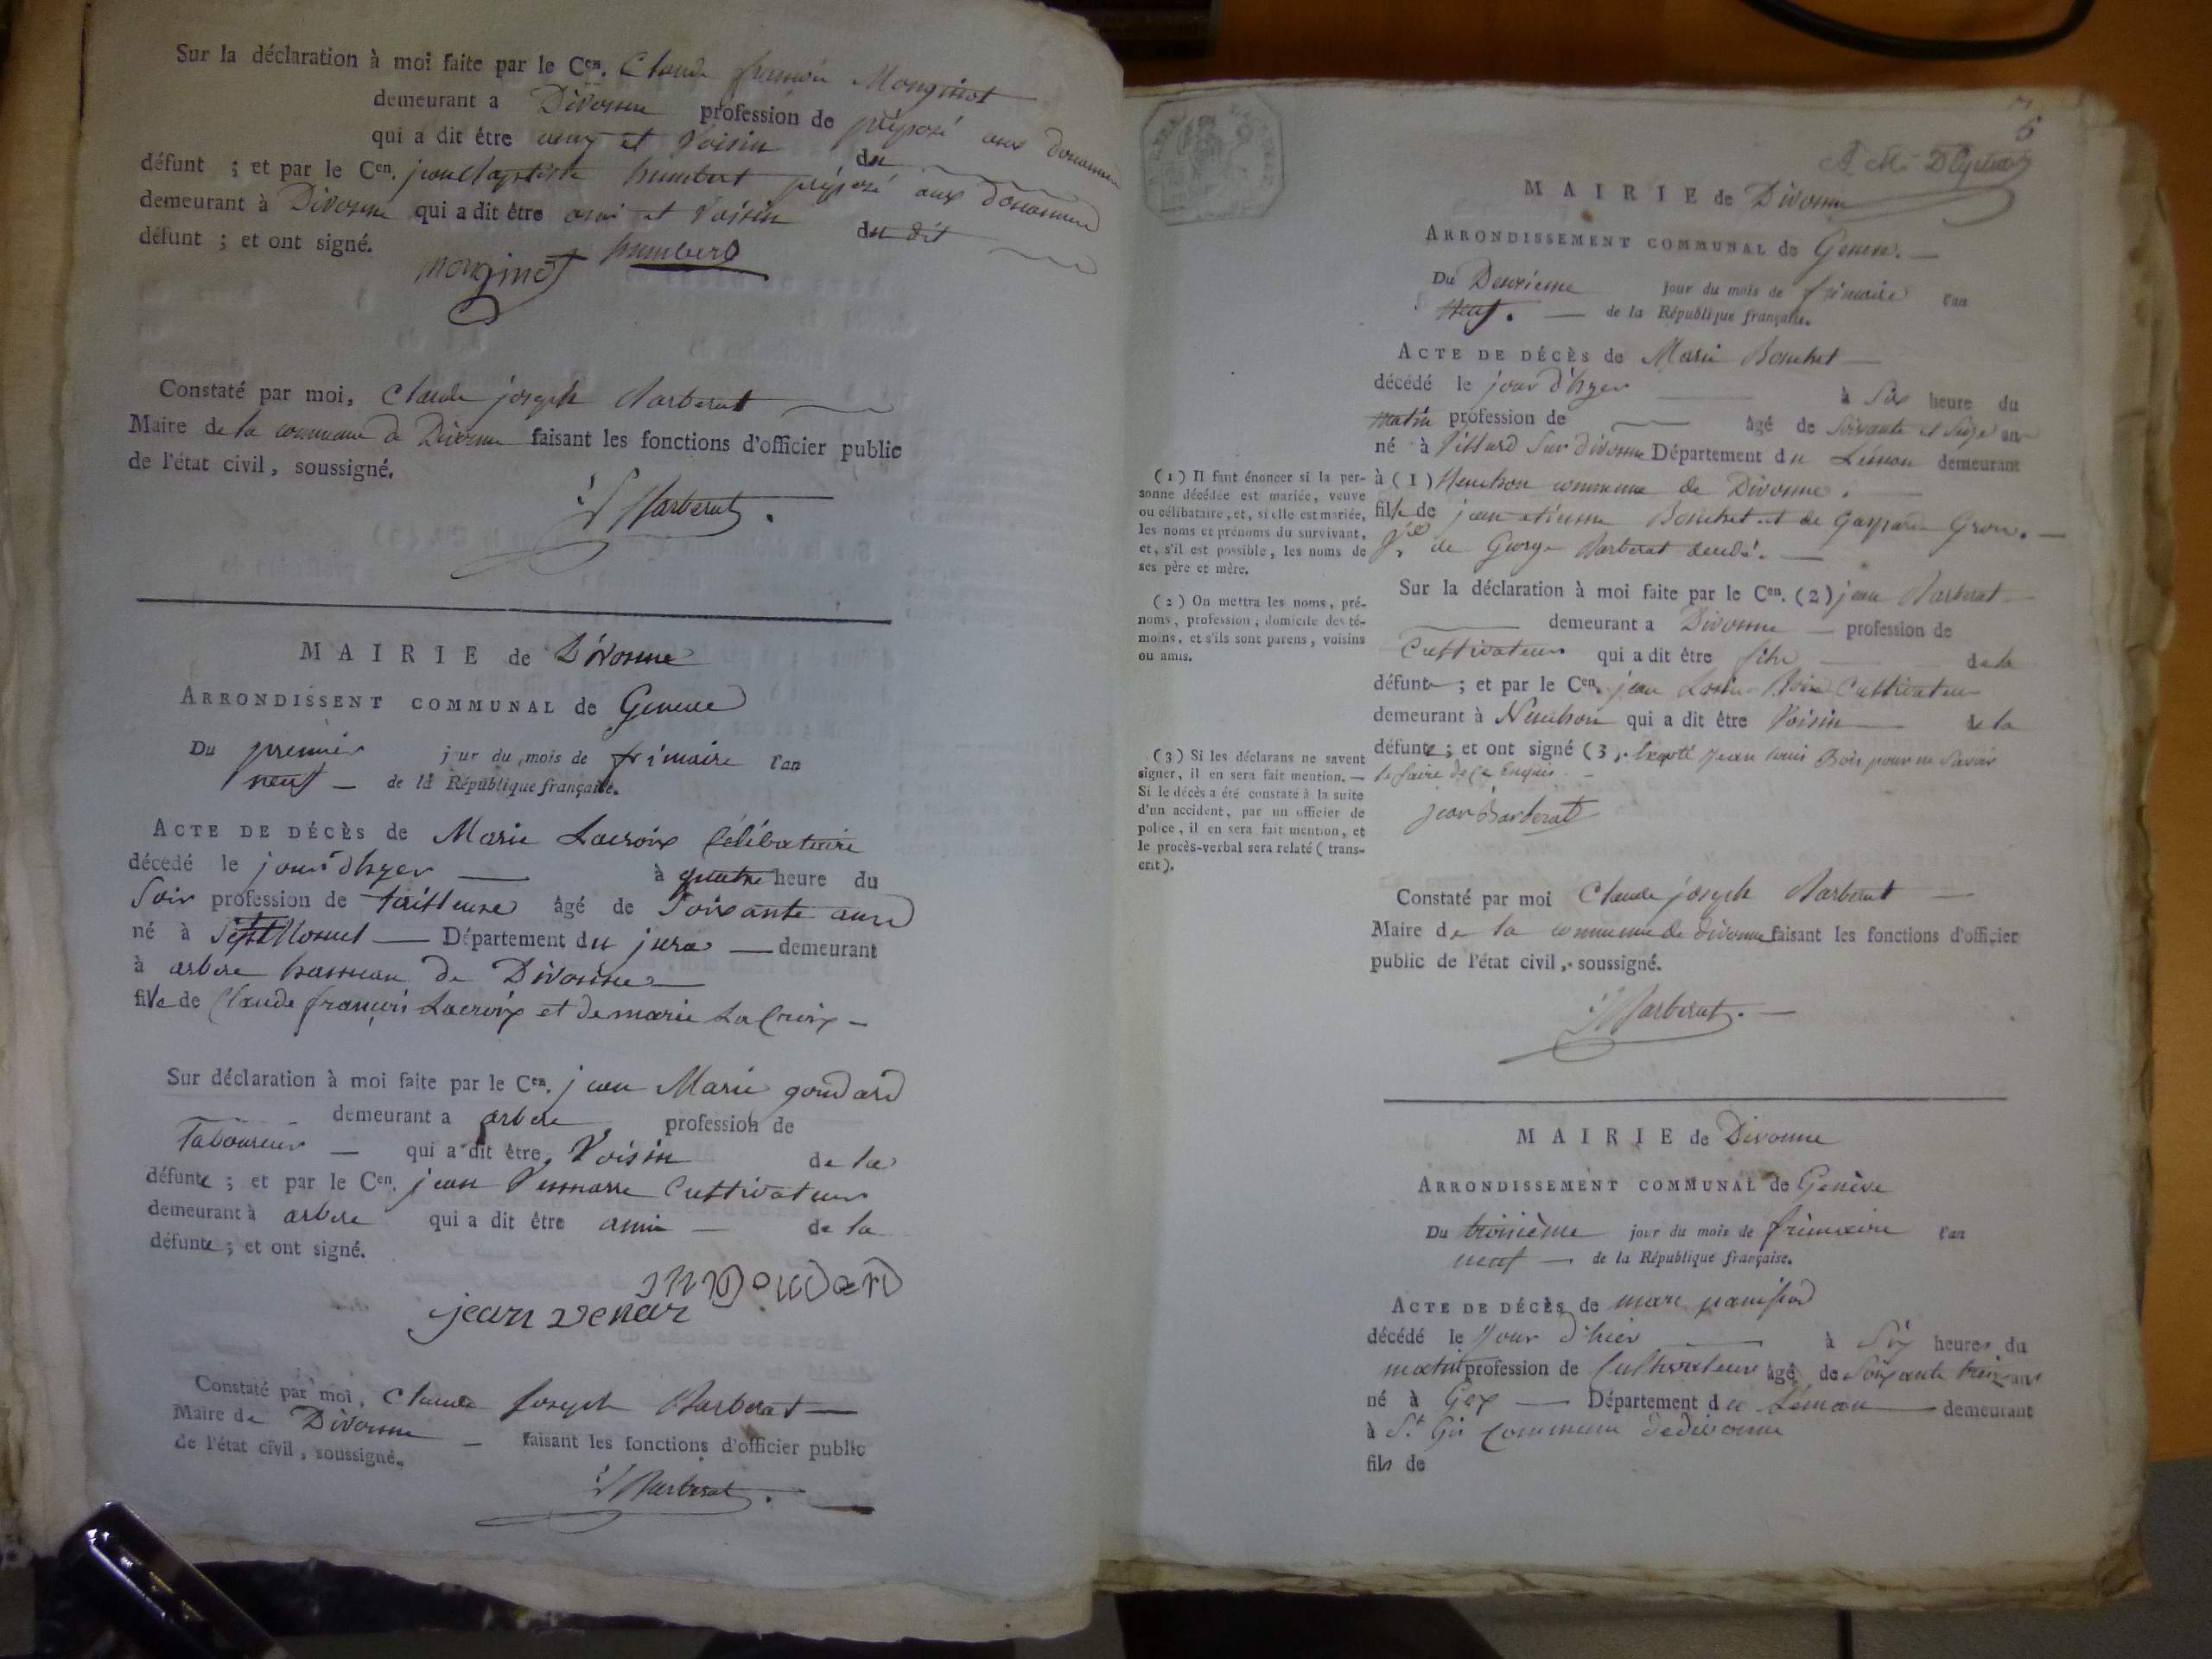 Sur la déclaration à moi faite par le Cen. Claude françois Monginot
demeurant a Divonne profession de préposé aux douannes
qui a dit être amy et Voisin du
défunt ; et par le Cen. jean baptiste humbert préposé aux douannes
demeurant à Divonne qui a dit être ami et Voisin du dit
défunt ; et ont signé.
monginot humbert
Constaté par moi, Claude joseph Barberat
Maire de la commune de Divonne faisant les fonctions d'officier public
de l'état civil, soussigné.
Barberat.
MAIRIE de Divonne
ARRONDISSENT COMMUNAL de Geneve
Du premier jour du mois de frimaire l'an
neuf de la République française.
ACTE DE DÉCÈS de Marie Lacroix Célibataire
décédé le jour d'hyer à quatre heure du
Soir profession de tailleuse âgé de Soixante ans
né à Département du jura demeurant
à arbere hameau de Divonne
fille de Claude françois Lacroix et de marie La Croix
Sur déclaration à moi faite par le Cen. jean Marie goudard
demeurant a arbere profession de
Laboureur qui a dit être Voisin de la
défunte ; et par le Cen. jean Cultivateur
demeurant à arbere qui a dit être ami de la
défunte ; et ont signé.
jean venar
Constaté par moi, Claude Joseph Barberat
Maire de Divonne faisant les fonctions d'officier public
de l'état civil, soussigné.
Barberat.
6
MAIRIE de Divonne
ARRONDISSEMENT COMMUNAL de Geneve.
Du Deuxieme jour du mois de frimaire l'an
Neuf. de la République française.
ACTE DE DÉCÈS de Marie Bouchet
décédé le jour d'hyer à Six heure du
matin profession de âgé de Soixante et Seize ans
né à Villard Sur divonne Département du Léman demeurant
à (1) commune de Divonne.
fille de jean etienne Bouchet et de Gasparde Gros.
de George Barberat
Sur la déclaration à moi faite par le Cen. (2) jean Barberat
demeurant a Divonne profession de
Cultivateur qui a dit être fils de la
défunte ; et par le Cen. jean Louis Bois Cultivateur
demeurant à qui a dit être Voisin de la
défunte ; et ont signé (3). Excepté Jean Louis Bois pour ne Savoir
le faire de ce Enquis.
jean Barberat
Constaté par moi Claude joseph Barberat
Maire de la commune de divonne faisant les fonctions d'officier
public de l'état civil, soussigné.
Barberat.
(1) Il faut énoncer si la per-
sonne décédée est mariée, veuve
ou célibataire, et, si elle est mariée,
les noms et prénoms du survivant,
et, s'il est possible, les noms de
ses père et mère.
(2) On mettra les noms, pré-
noms, profession, domicile des té-
moins, et s'ils sont parens, voisins
ou amis.
(3) Si les déclarans ne savent
signer, il en sera fait mention. —
Si le décès a été constaté à la suite
d'un accident, par un officier de
police, il en sera fait mention, et
le procès-verbal sera relaté (trans-
crit).
MAIRIE de Divonne
ARRONDISSEMENT COMMUNAL de Genève
Du troisième jour du mois de frimaire l'an
neuf de la République française.
ACTE DE DÉCÈS de marc
décédé le jour d'hier à Six heures du
matin profession de Cultivateur âgé de Soixante treize ans
né à Gex Département du Léman demeurant
à St. Gix Commune de divonne
fils de